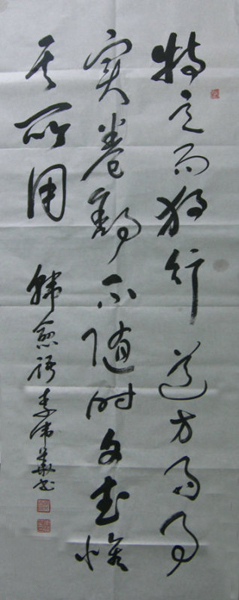 特立而独行道方而事
实卷舒不随时文武惟
其所用
韩愈语 李